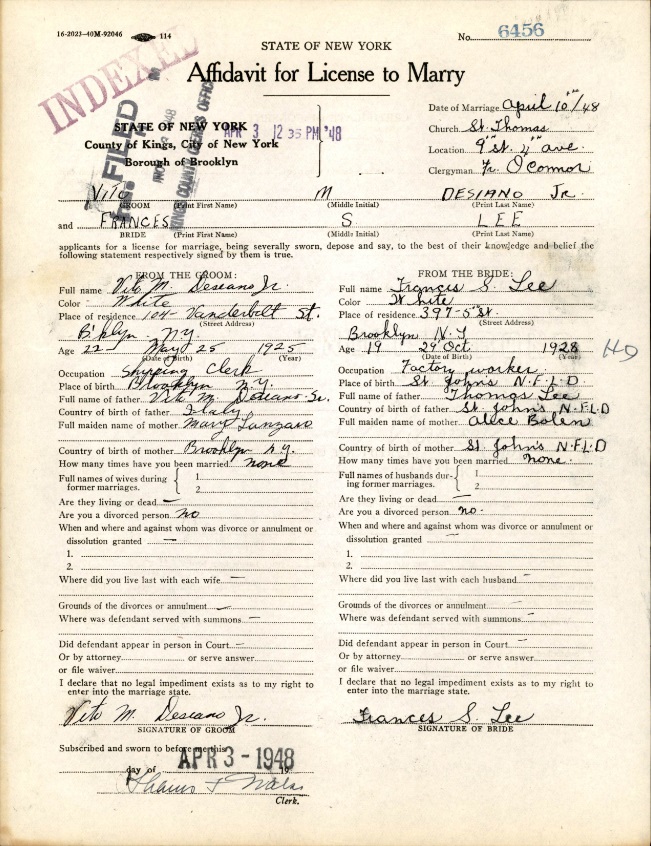 16-2023-40M-92046 114
No. 6456
STATE OF NEW YORK
Affidavit for License to Marry
INDEXED
FILED
KINGS COUNTY CLERK'S OFFICE
APR 3 12 35 PM '48
STATE OF NEW YORK
County of Kings, City of New York
Borough of Brooklyn
Date of Marriage April 10th/48
Church St. Thomas
Location 9" St. 4" ave.
Clergyman Fr. O'Connor
VITO M DESIANO Jr.
GROOM (Print First Name) (Middle Initial) (Print Last Name)
and FRANCES S LEE
BRIDE (Print First Name) (Middle Initial) (Print Last Name)
applicants for a license for marriage, being severally sworn, depose and say, to the best of their knowledge and belief the
following statement respectively signed by them is true.
FROM THE GROOM:
Full name Vito M. Desiano Jr.
Color White
Place of residence 104- Vanderbilt St.
(Street Address)
B'klyn N.Y.
Age 22 May 25 1925
(Date of Birth) (Year)
Occupation Shipping Clerk
Place of birth Brooklyn N.Y.
Full name of father Vito M. Desiano Sr.
Country of birth of father Italy
Full maiden name of mother Mary Lanzaro
Country of birth of mother Brooklyn N.Y.
How many times have you been married none
Full names of wives during
former marriages.
1
2
Are they living or dead —
Are you a divorced person no
When and where and against whom was divorce or annulment or
dissolution granted —
1.
2.
Where did you live last with each wife —
Grounds of the divorces or annulment —
Where was defendant served with summons —
Did defendant appear in person in Court —
Or by attorney or serve answer
or file waiver
I declare that no legal impediment exists as to my right to
enter into the marriage state.
Vito M. Desiano Jr.
SIGNATURE OF GROOM
Subscribed and sworn to before me this
APR 3 - 1948
day of 19
Clerk.
FROM THE BRIDE:
Full name Frances S. Lee
Color White
Place of residence 397-5" St.
(Street Address)
Brooklyn N.Y
Age 19 29 Oct 1928 HO
(Date of Birth) (Year)
Occupation Factory worker
Place of birth St. Johns N.F.L.D
Full name of father Thomas Lee
Country of birth of father St. John's N.F.L.D
Full maiden name of mother Alice Bolen
Country of birth of mother St John's N.F.L.D
How many times have you been married none.
Full names of husbands dur-
ing former marriages.
1
2
Are they living or dead —
Are you a divorced person no.
When and where and against whom was divorce or annulment or
dissolution granted —
1.
2.
Where did you live last with each husband —
Grounds of the divorces or annulment —
Where was defendant served with summons —
Did defendant appear in person in Court —
Or by attorney or serve answer
or file waiver
I declare that no legal impediment exists as to my right to
enter into the marriage state.
Frances S. Lee
SIGNATURE OF BRIDE